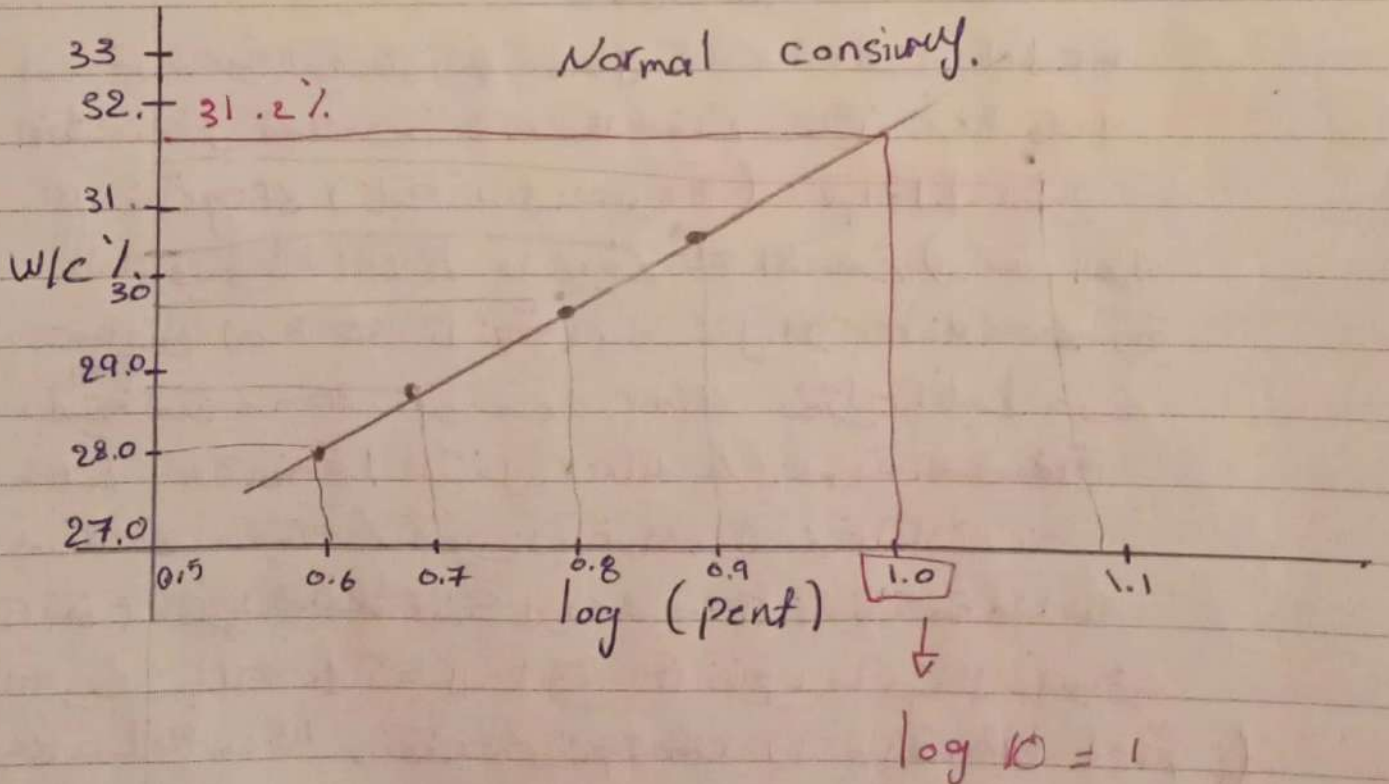 Normal consiuncy.
33
32.
31.2%
31.
W/C %
30
29.0
28.0
27.0
0.5 0.6 0.7 0.8 0.9 1.0 1.1
log (pent)
log 10 = 1